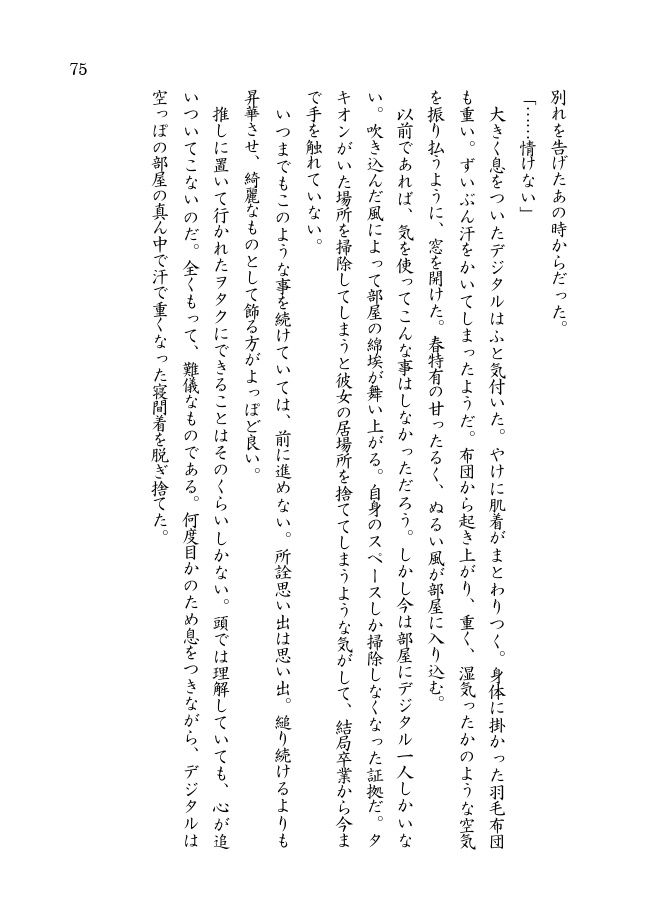 75
別れを告げたあの時からだった。
「……情けない」
　大きく息をついたデジタルはふと気付いた。やけに肌着がまとわりつく。身体に掛かった羽毛布団
も重い。ずいぶん汗をかいてしまったようだ。布団から起き上がり、重く、湿気ったかのような空気
を振り払うように、窓を開けた。春特有の甘ったるく、ぬるい風が部屋に入り込む。
　以前であれば、気を使ってこんな事はしなかっただろう。しかし今は部屋にデジタル一人しかいな
い。吹き込んだ風によって部屋の綿埃が舞い上がる。自身のスペースしか掃除しなくなった証拠だ。タ
キオンがいた場所を掃除してしまうと彼女の居場所を捨ててしまうような気がして、結局卒業から今ま
で手を触れていない。
　いつまでもこのような事を続けていては、前に進めない。所詮思い出は思い出。縋り続けるよりも
昇華させ、綺麗なものとして飾る方がよっぽど良い。
　推しに置いて行かれたヲタクにできることはそのくらいしかない。頭では理解していても、心が追
いついてこないのだ。全くもって、難儀なものである。何度目かのため息をつきながら、デジタルは
空っぽの部屋の真ん中で汗で重くなった寝間着を脱ぎ捨てた。